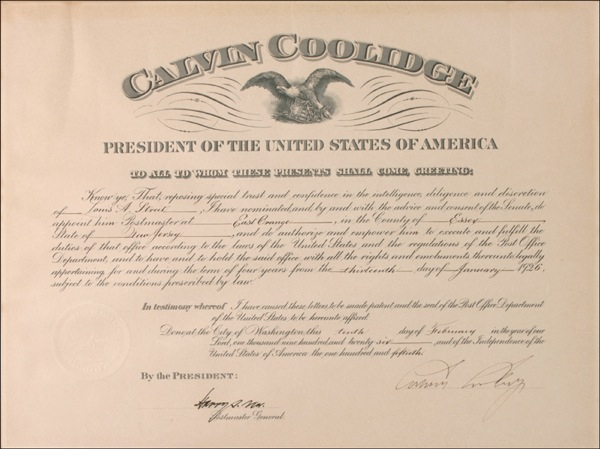 CALVIN COOLIDGE
PRESIDENT OF THE UNITED STATES OF AMERICA
TO ALL TO WHOM THESE PRESENTS SHALL COME, GREETING:
Know ye, That, reposing special trust and confidence in the intelligence, diligence and discretion
of Louis A. Street, I have nominated, and, by and with the advice and consent of the Senate, do
appoint him Postmaster at East Orange, in the County of Essex
State of New Jersey, and do authorize and empower him to execute and fulfill the
duties of that office according to the laws of the United States and the regulations of the Post Office
Department, and to have and to hold the said office with all the rights and emoluments thereunto legally
appertaining, for and during the term of four years from the thirteenth day of January 1926.
subject to the conditions prescribed by law
In testimony whereof I have caused these letters to be made patent, and the seal of the Post Office Department
of the United States to be hereunto affixed.
Done at the City of Washington this tenth day of February in the year of our
Lord, one thousand nine hundred and twenty six, and of the Independence of the
United States of America the one hundred and fiftieth.
By the PRESIDENT:
Calvin Coolidge
Harry S. New
Postmaster General.